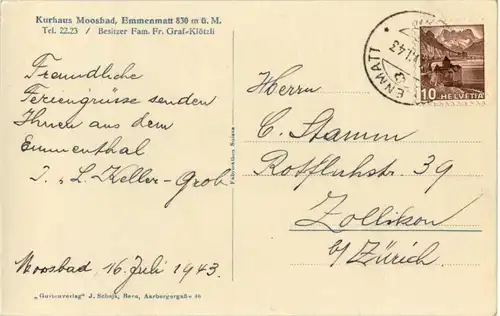 Kurhaus Moosbad, Emmenmatt 830 m ü. M.
Tel. 22.23 / Besitzer Fam. Fr. Graf-Klötzli
Freundliche
Feriengrüsse senden
Ihnen aus dem
Emmenthal
J. u. L. Keller-Grob
Moosbad, 16. Juli 1943.
„Gartenverlag" J. Schaja, Bern, Aarbergergaße 46
Fabrication Suisse
ENMATT
43
10 HELVETIA
Herrn
C. Stamm
Rotfluhstr. 39
Zollikon
b/ Zürich.